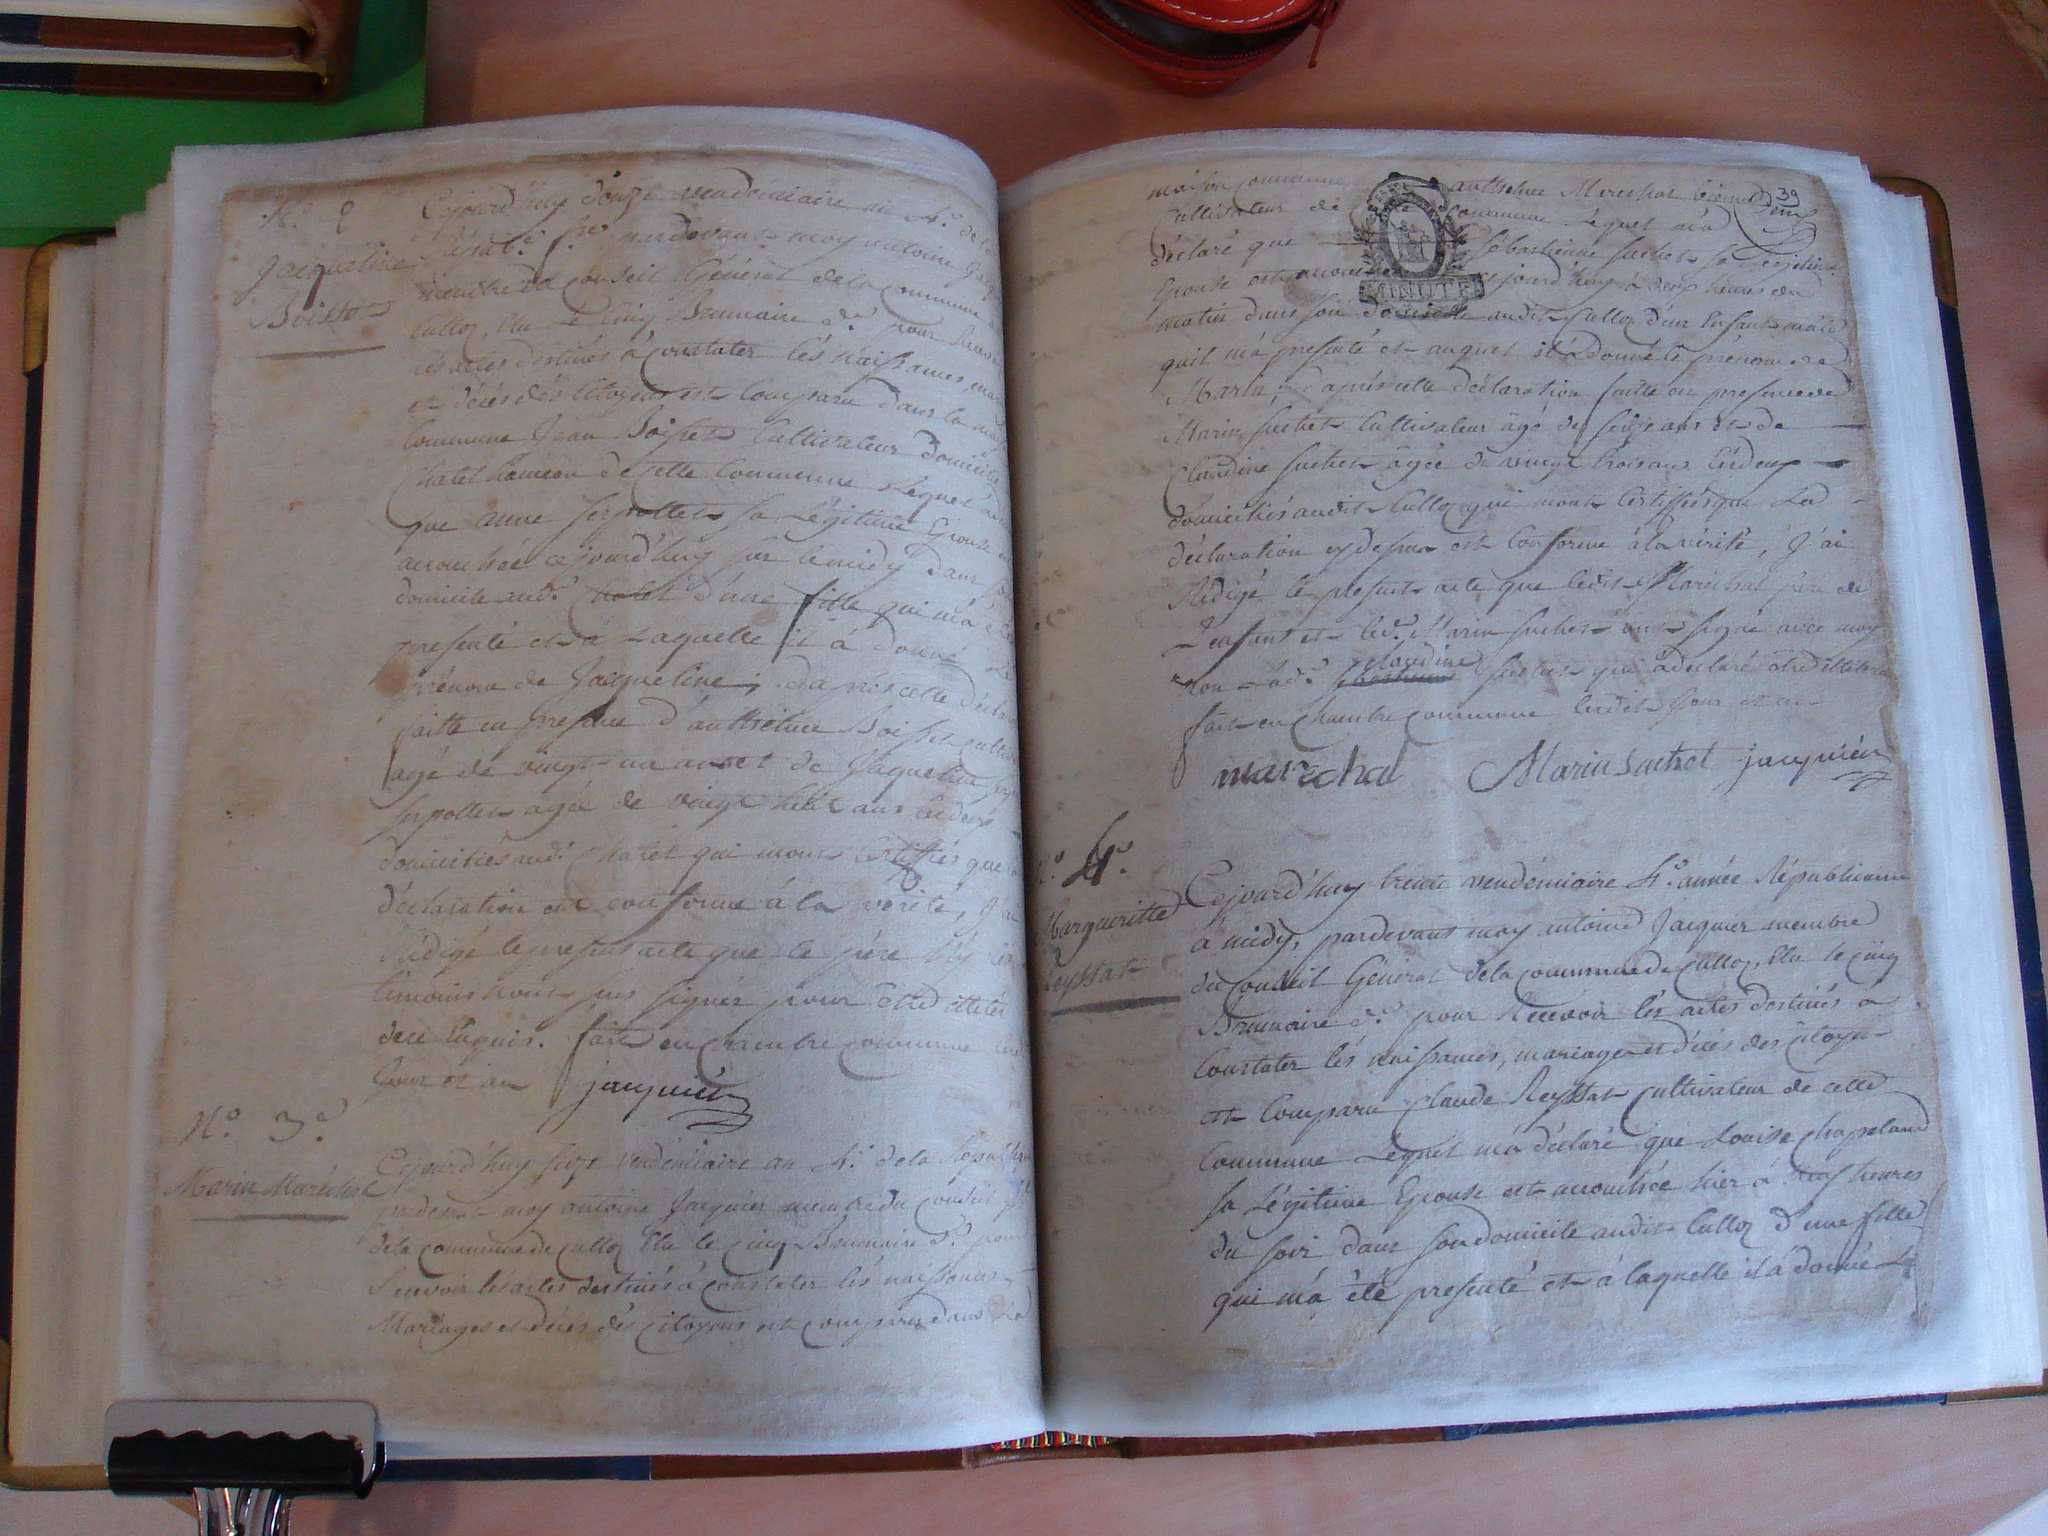 N.o 2
Jacqueline
Boisset
Cejourd'huy douze vendémiaire an 4.e de la
Répub.e fr.se pardevant moy antoine Jacq
membre du Conseil Général de la commune
Culloz, Elu le Cinq Brumaire d.r pour Recev
les actes destinés à Constater lés naissances, ma
et décés dés Citoyens est Comparu dans la
Commune Jean Boisset Cultivateur domicilié
Chatel hameau de cette Commune Lequel
que anne serpollet sa Légitime Epouse
accouchée cejourd'huy sur le midy dans
domicile aud.t Chatel d'une fille qui m'a
presenté et à Laquelle il à donné Le
prénom de Jacqueline; d'après cette déclar
faitte en presence d'anthelme Boisset cultiv
agé de vingt un an et de Jaqueline
serpollet agée de vingt huit ans les deux
domiciliés aud.t Chatel qui m'ont Certiffiés que
déclaration est conforme à la vérité, J'ai
Rédigé le present acte que le père
témoins n'ont pus signer pour être illitér
de ce Enquis. fait en chambre commune
Jour et an jacquiér
N.o 3.e
Marin Maréchal
Cejourd'huy seize vendémiaire an 4.e de la Républi
pardevant moy antoine Jacquier membre du Conseil
de la commune de Culloz Elu le cinq Brumaire d.r pour
Recevoir les actes destinés à constater lés naissances
Mariages et décés dés Citoyens est comparu dans La
39
maison commune anthelme Marechal
Cultivateur de commune Lequel m'a
déclaré que Sébastienne suchet sa Légitime
Epouse est accouchée cejourd'huy à heures du
matin dans son domicile audit Culloz d'un Enfant mâle
quil m'a presenté et auquel il à donné le prénom de
Marin; d'après cette déclaration faitte en presence de
Marin suchet Cultivateur âgé de seize ans Et de
Claudine suchet âgée de vingt trois ans les deux
domiciliés audit Culloz qui m'ont Certiffiés que La
déclaration cy dessus est Conforme à la vérité, J'ai
Rédigé le present acte que ledit Maréchal père de
L'enfant et led.t Marin suchet ont signé avec moy
non lad.te claudine suchet qui à déclaré être illiterée
fait en chambre commune lesdits Jour et an
marechal Marin Suchet jacquiér
MINUTE
N.o 4.e
Margueritte
Reyssat
Cejourd'huy trente vendémiaire 4.e année Républicaine
à midy, pardevant moy antoine Jacquier membre
du Conseil Général de la commune de Culloz, Elu le cinq
Brumaire d.r pour Recevoir lés actes destinés à
Constater lés naissances, mariages et décés dés Citoyens
est Comparu Claude Reyssat Cultivateur de cette
Commune Lequel m'a déclaré que Louise Chapeland
sa Légitime Epouse est accouchée hier à heures
du soir dans son domicile audit Culloz d'une fille
qui m'a été presenté et à laquelle il a donné